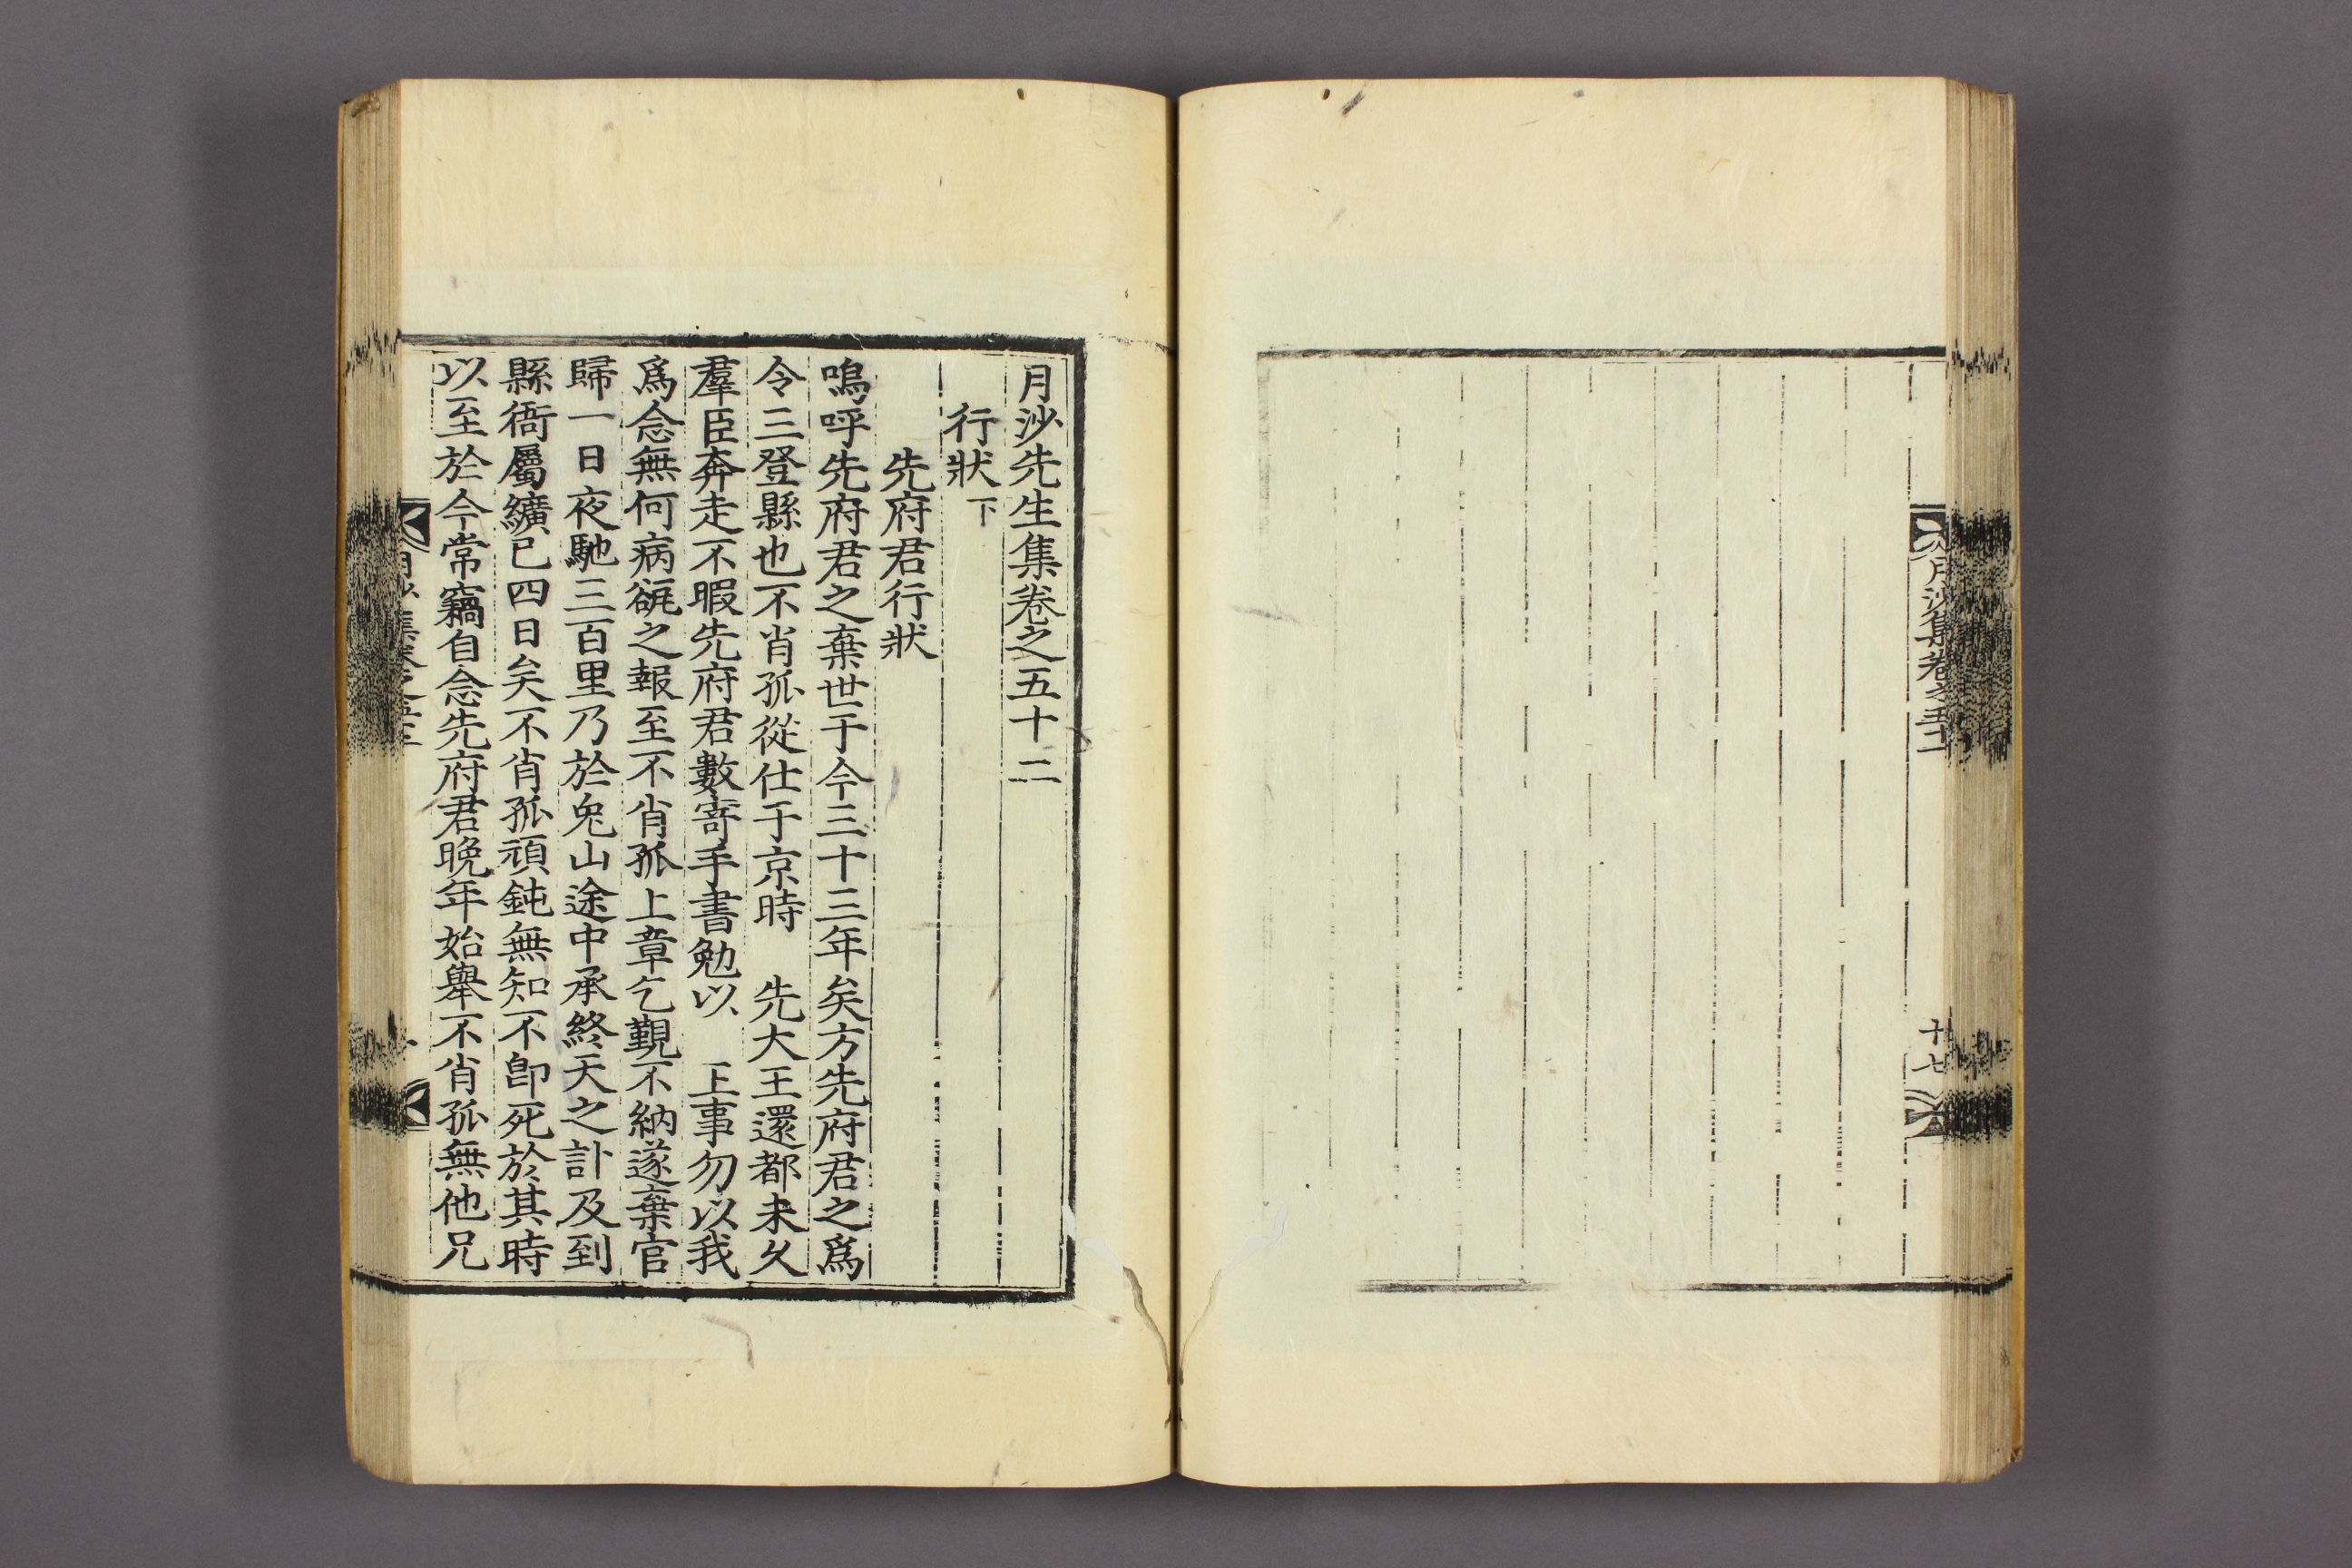 月沙集卷之五十一
十七
月沙先生集卷之五十二
行狀下
先府君行狀
嗚呼先府君之棄世于今三十三年矣方先府君之爲
令三登縣也不肖孤從仕于京時　先大王還都未久
羣臣奔走不暇先府君數寄手書勉以　上事勿以我
爲念無何病㞃之報至不肖孤上章乞覲不納遂棄官
歸一日夜馳三百里乃於兔山途中承終天之訃及到
縣衙屬纊已四日矣不肖孤頑鈍無知不卽死於其時
以至於今常竊自念先府君晩年始舉不肖孤無他兄